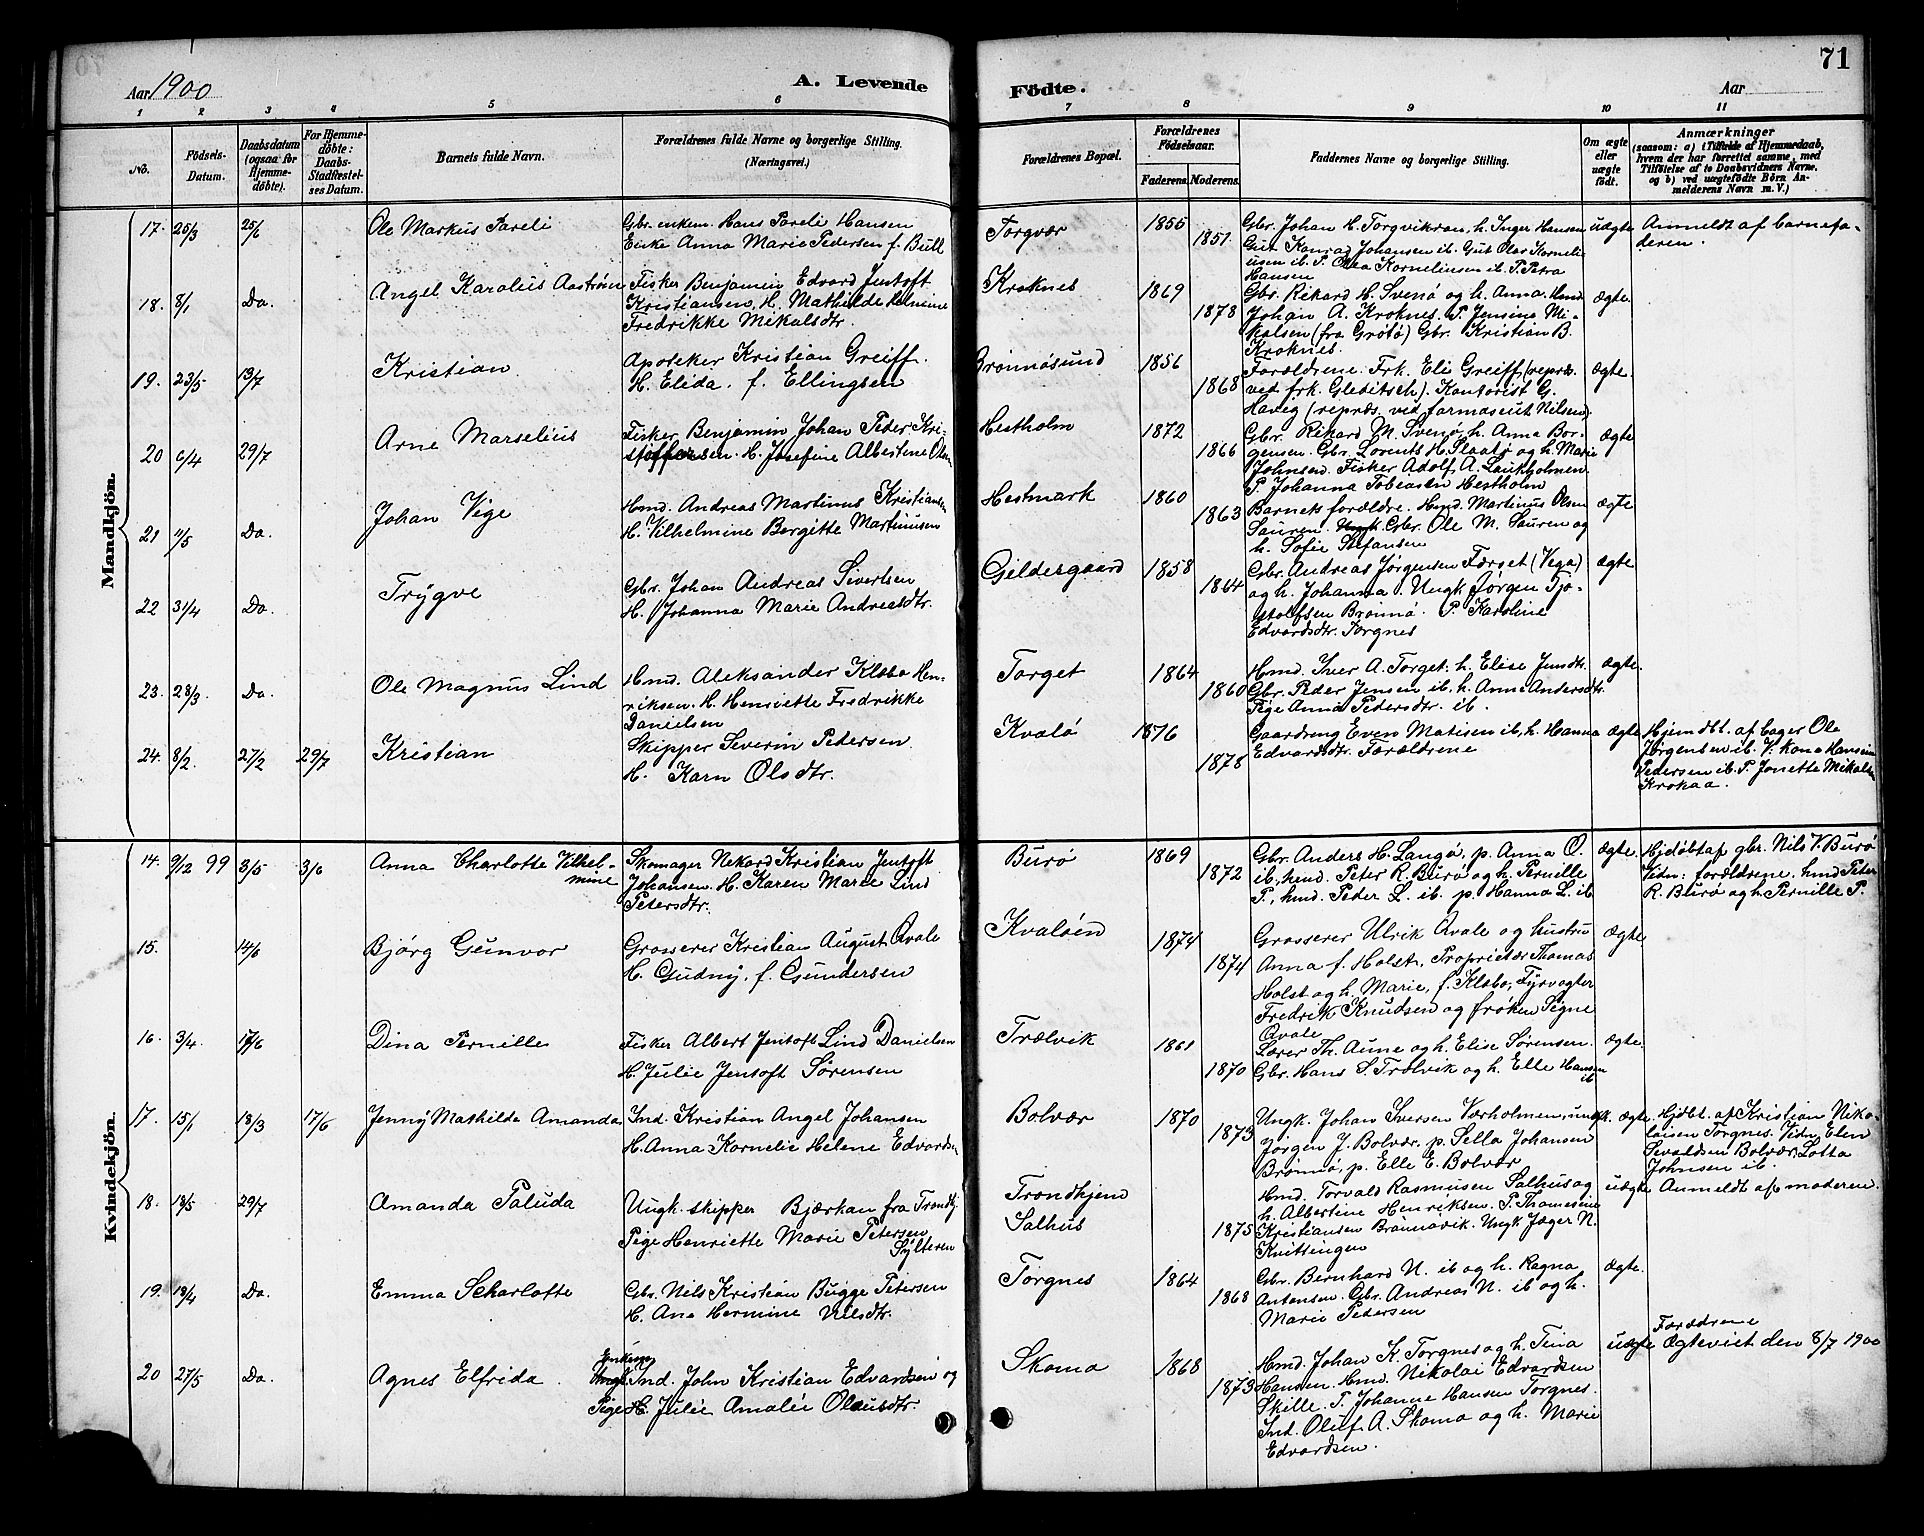 71
Aar 1900
A. Levende
Födte.
Aar
1 2 3 4 5 6 7 8 9 10 11
No.
Födsels-
Datum.
Daabsdatum
(ogsaa for
Hjemme-
döbte).
For Hjemme-
döbte:
Daabs-
Stadfæstel-
ses Datum.
Barnets fulde Navn.
Forældrenes fulde Navne og borgerlige Stilling.
(Næringsvei.)
Forældrenes Bopæl.
Forældrenes
Födselsaar.
Faderens. Moderens.
Faddernes Navne og borgerlige Stilling.
Om ægte
eller
uægte
født.
Anmærkninger
(saasom: a) i Tilfælde af Hjemmedaab,
hvem der har forrettet samme, med
Tilföielse af to Daabsvidners Navne.
og b) ved uægtefödte Börn An-
melderens Navn m. V.)
Mandkjön.
17. 25/3 25/6 Ole Markus Pareli
Gbr. enkem. Hans Pareli Hansen
Enke Anna Marie Pedersen f. Bull
Torgvær 1855 1851
Gbr. Johan H. Torgvikran, h. Inger Hansen
Gut Konrad Johansen ib. Gut Olav Korneli-
usen ib. P. Olea Kornelinsen ib. P. Petra
Hansen
uægte Anmeldt af barnefa-
deren.
18. 8/1 Do. Angel Karolius Aastrøm
Fisker Benjamin Edvard Jentoft
Kristiansen, H. Mathilde Helmine
Fredrikke Mikalsdtr.
Kroknes 1869 1878
Gbr. Rikard H. Svenø og h. Anna. Hmd.
Johan A. Kroknes. P. Jensine Mi-
kalsen (fra Grøtø) Gbr. Kristian B.
Kroknes.
ægte.
19. 23/5 13/7 Kristian
Apoteker Kristian Greiff.
H. Elida. f. Ellingsen
Brønnøsund 1856 1868
Forældrene. Frk. Eli Greiff (repr.
ved frk. Gleditsch). Kontorist G.
Haveg (repræs. ved farmaseut Nilsen)
ægte.
20 6/4 29/7 Arne Marselius
Fisker Benjamin Johan Peder Kri-
stoffersen. H. Josefine Albertine Olsen
Hestholm 1872 1866
Gbr. Rikard M. Svenø, h. Anna Bor-
gensen. Gbr. Lorents H. Slaatø og h. Marie
Johnsen. Fisker Adolf A. Lankholmen.
P. Johanna Tobiasen Hestholm
ægte
21 11/5 Do. Johan Vige
Hmd. Andreas Martinus Kristiansen
H. Vilhelmine Bergitte Martinusen
Hestmark 1860 1863
Barnets forældre. Hmd. Martinus Olsen
Sauren. Gbr. Ole M. Sauren og
h. Sofie Stefansen
ægte
22 31/4 Do. Trygve
Gbr. Johan Andreas Sivertsen
H. Johanna Marie Andreasdtr.
Gildergaard 1858 1864
Gbr. Andreas Jørgensen Færset (Vega)
og h. Johanna. Ungk Jørgen Tjo-
stolfsen Brønnø. P. Karoline
Edvardsdtr. Torgnes
ægte
23. 28/3 Do. Ole Magnus Lind
Hmd. Aleksander Klæbo Hen-
riksen. H. Henriette Fredrikke
Danielsen
Torget 1864 1860
Hmd. Iver A. Torget. h. Elise Jensdtr.
Gbr. Peder Jensen ib. h. Anne Andersdtr.
Pige Anna Pedersdtr. ib.
ægte.
24. 8/2. 27/2 29/7 Kristian
Skipper Severin Pedersen.
H. Karn Olsdtr.
Kvalø 1876 1878
Gaardbrug Even Matisen ib, h. Hanna
Edvardsdtr. Forældrene
ægte Hjemdbt. af Bager Ole
Jørgensen ib. V. kona Hansine
Pedersen ib. P. Jonette Mikalsen
Krokaa.
Kvindekjön.
14. 9/12 99 3/5 3/6 Anna Charlotte Vilhel-
mine
Skomager Nekard Kristian Jentoft
Johansen. H. Karen Marie Lind
Petersdtr.
Burø 1869 1872
Gbr. Anders H. Langø, p. Anna O.
ib, hmd. Peter R. Burø og h. Pernille
P., hmd. Peder L. ib. p. Hanna L. ib
ægte. Hjdøbt af gbr. Nils V. Burø
Vidn: forældrene, hmd Peter
R. Burø og h. Pernille P.
15. 14/6 Bjørg Gunvor
Grosserer Kristian August Qvale
H. Gudny, f. Gundersen
Kvaløen 1874 1874
Grosserer Ulrik Qvale og hustru
Anna f. Holst, Proprietær Thomas
Holst og h. Marie, f. Klæbo, Fyrvogter
Fredrik Knudsen og frøken Signe
Qvale
ægte
16. 3/4 17/6 Dina Pernille
Fisker Albert Jentoft Lind Danielsen
H. Julie Jentoft Sørensen
Trælvik 1861 1870
Lærer Th. Aune og h. Elise Sørensen.
Gbr. Hans S. Trælvik og h. Elle Hansen
ib
ægte.
17. 15/1 18/3 17/6 Jenny Mathilde Amanda
Ind. Kristian Angel Johansen
H. Anna Kornelie Helene Edvardsen
Bolvær 1870 1873
Ungk. Johan Iversen Værholmen, ungk.
Jørgen J. Bolvær. p. Sella Johansen
Brønnø, p. Elle E. Bolvær
ægte. Hjdbt. af Kristian Niko-
laisen Torgnes. Vidn. Elen
Sevaldsen Bolvær, Lotta
Johnsen ib.
18. 18/5 29/7 Amanda Paluda
Ungk. skipper Bjærkan fra Trondhj.
Pige Henriette Marie Petersen
Sylteren
Trondhjem
Salhus 1875
Hmd. Torvald Rasmusen Salhus og
h. Albertine Henriksen. P. Thomasine
Kristiansen Brønnøvik. Ungk Jæger N.
Knittingen
uægte Anmeldt af moderen.
19. 19/4 Do. Emma Scharlotte
Gbr. Nils Kristian Bugge Petersen
H. Ane Hermine Nilsdtr.
Torgnes 1864 1868
Gbr. Bernhard N. ib og h. Ragna
Antonsen. Gbr. Andreas N. ib og h.
Marie Pedersen
ægte.
20 27/5 Do. Agnes Elfrida.
Enkem.
Ind. John Kristian Edvardsen og
Pige H. Julie Amalie Olausdtr.
Skomo 1868 1873
Hmd. Johan K. Torgnes og h. Tina
Hansen. Hmd. Nikolai Edvardsen
Skille. P. Johanne Hansen Torgnes.
Ind. Oluf A. Skomo og h. Marie
Edvardsen.
uægte Forældrene
Ægteviet den 8/7 1900